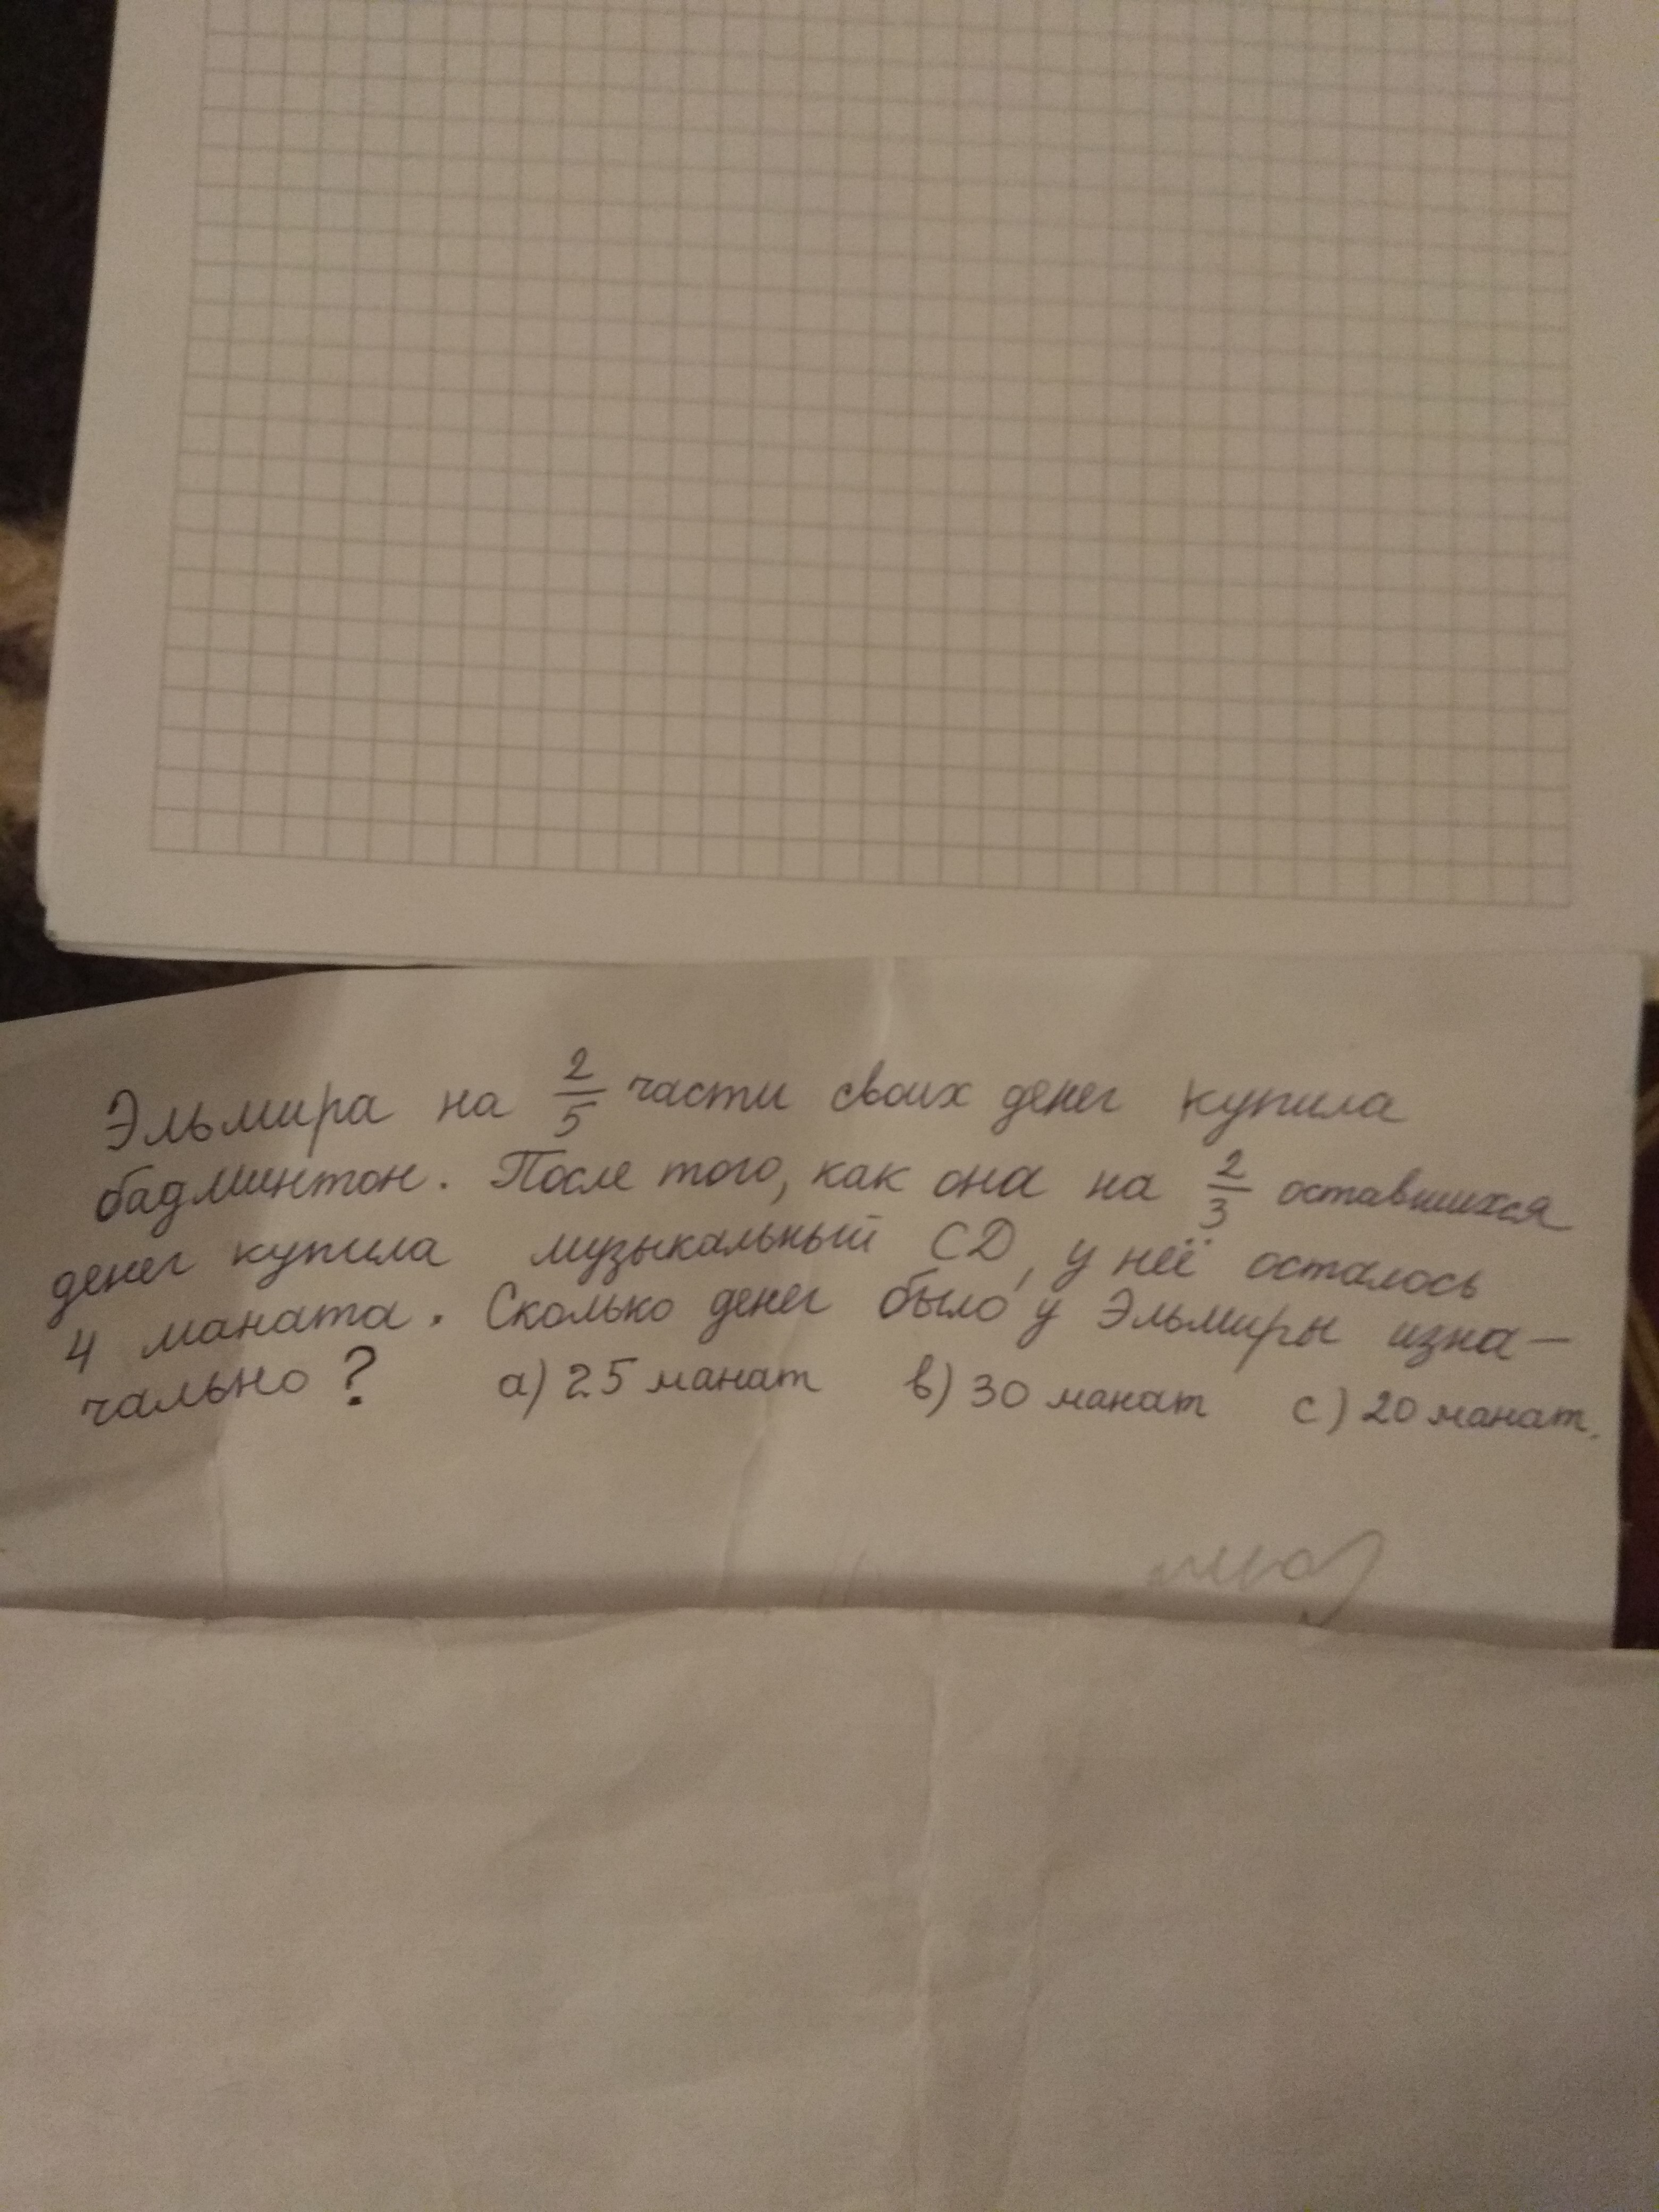 Эльмира на 2/5 части своих денег купила
бадминтон. После того, как она на 2/3 оставшихся
денег купила музыкальный CD, у неё осталось
4 маната. Сколько денег было у Эльмиры изна-
чально? а) 25 манат в) 30 манат с) 20 манат.